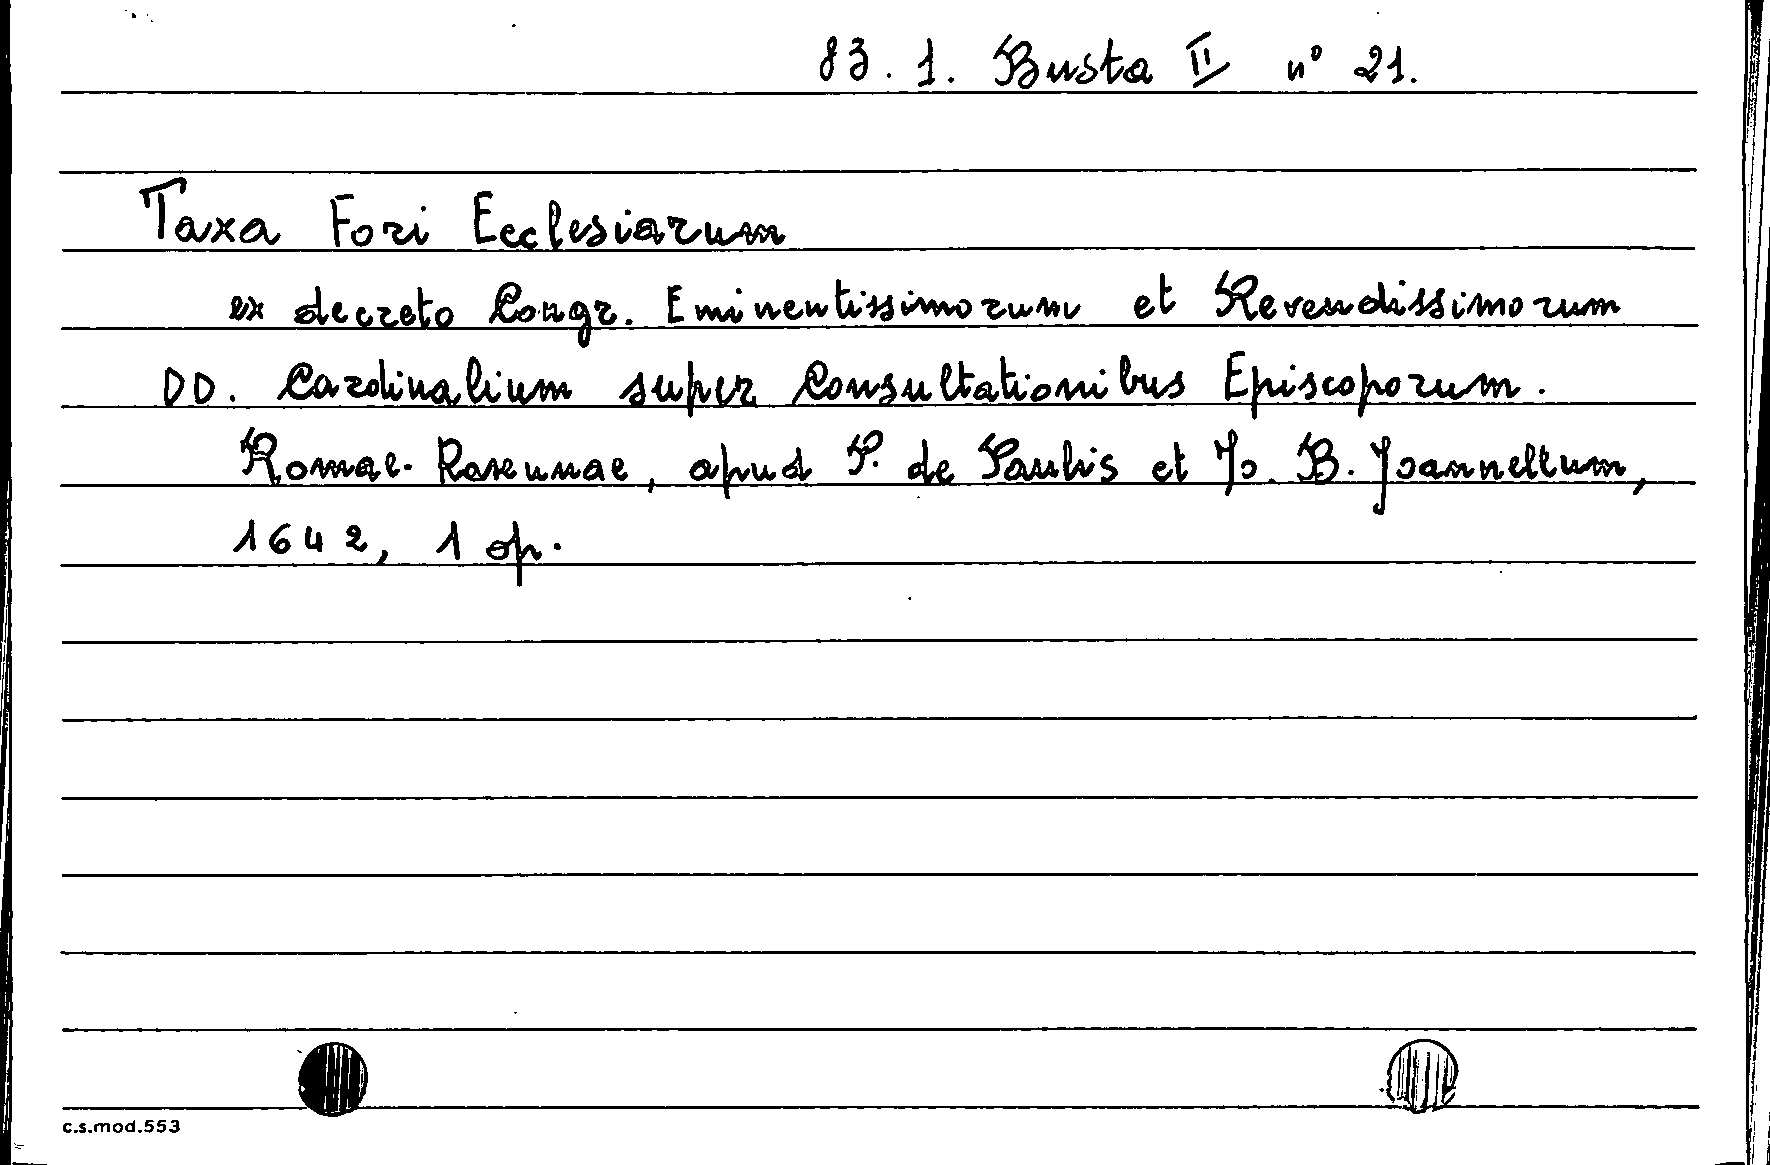 83. 1. Busta II n° 21.
Taxa Fori Ecclesiarum
ex decreto Congr. Eminentissimorum et Revendissimorum
DD. Cardinalium super Consultationibus Episcoporum.
Romae-Ravennae, apud P. de Paulis et Jo. B. Joannellum,
1642, 1 op.
c.s.mod.553